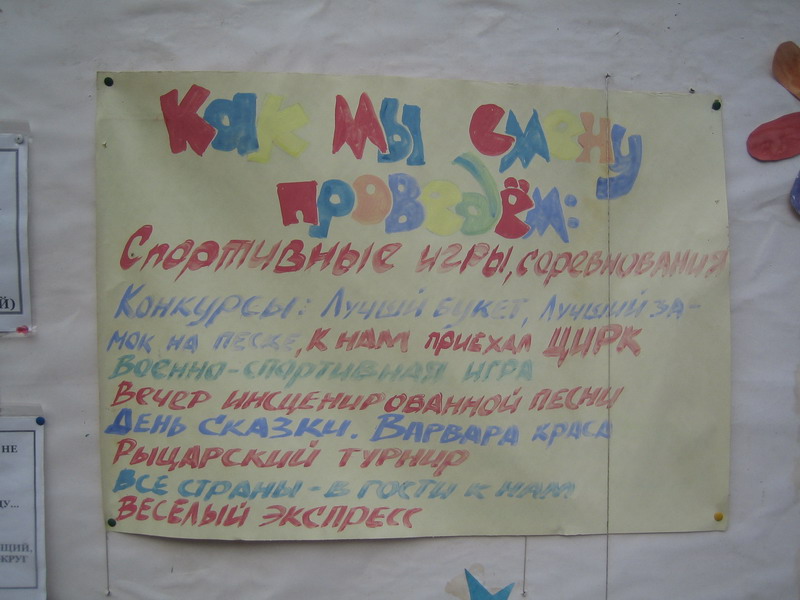 Как мы смену
проведём:
Спортивные игры, соревнования
Конкурсы: Лучший букет, Лучший за-
мок на песке, к нам приехал ЦИРК
Военно-спортивная игра
Вечер инсценированной песни
День сказки. Варвара краса
Рыцарский турнир
Все страны - в гости к нам
Веселый экспресс
Й)
НЕ
ДУ...
ЩИЙ,
КРУГ